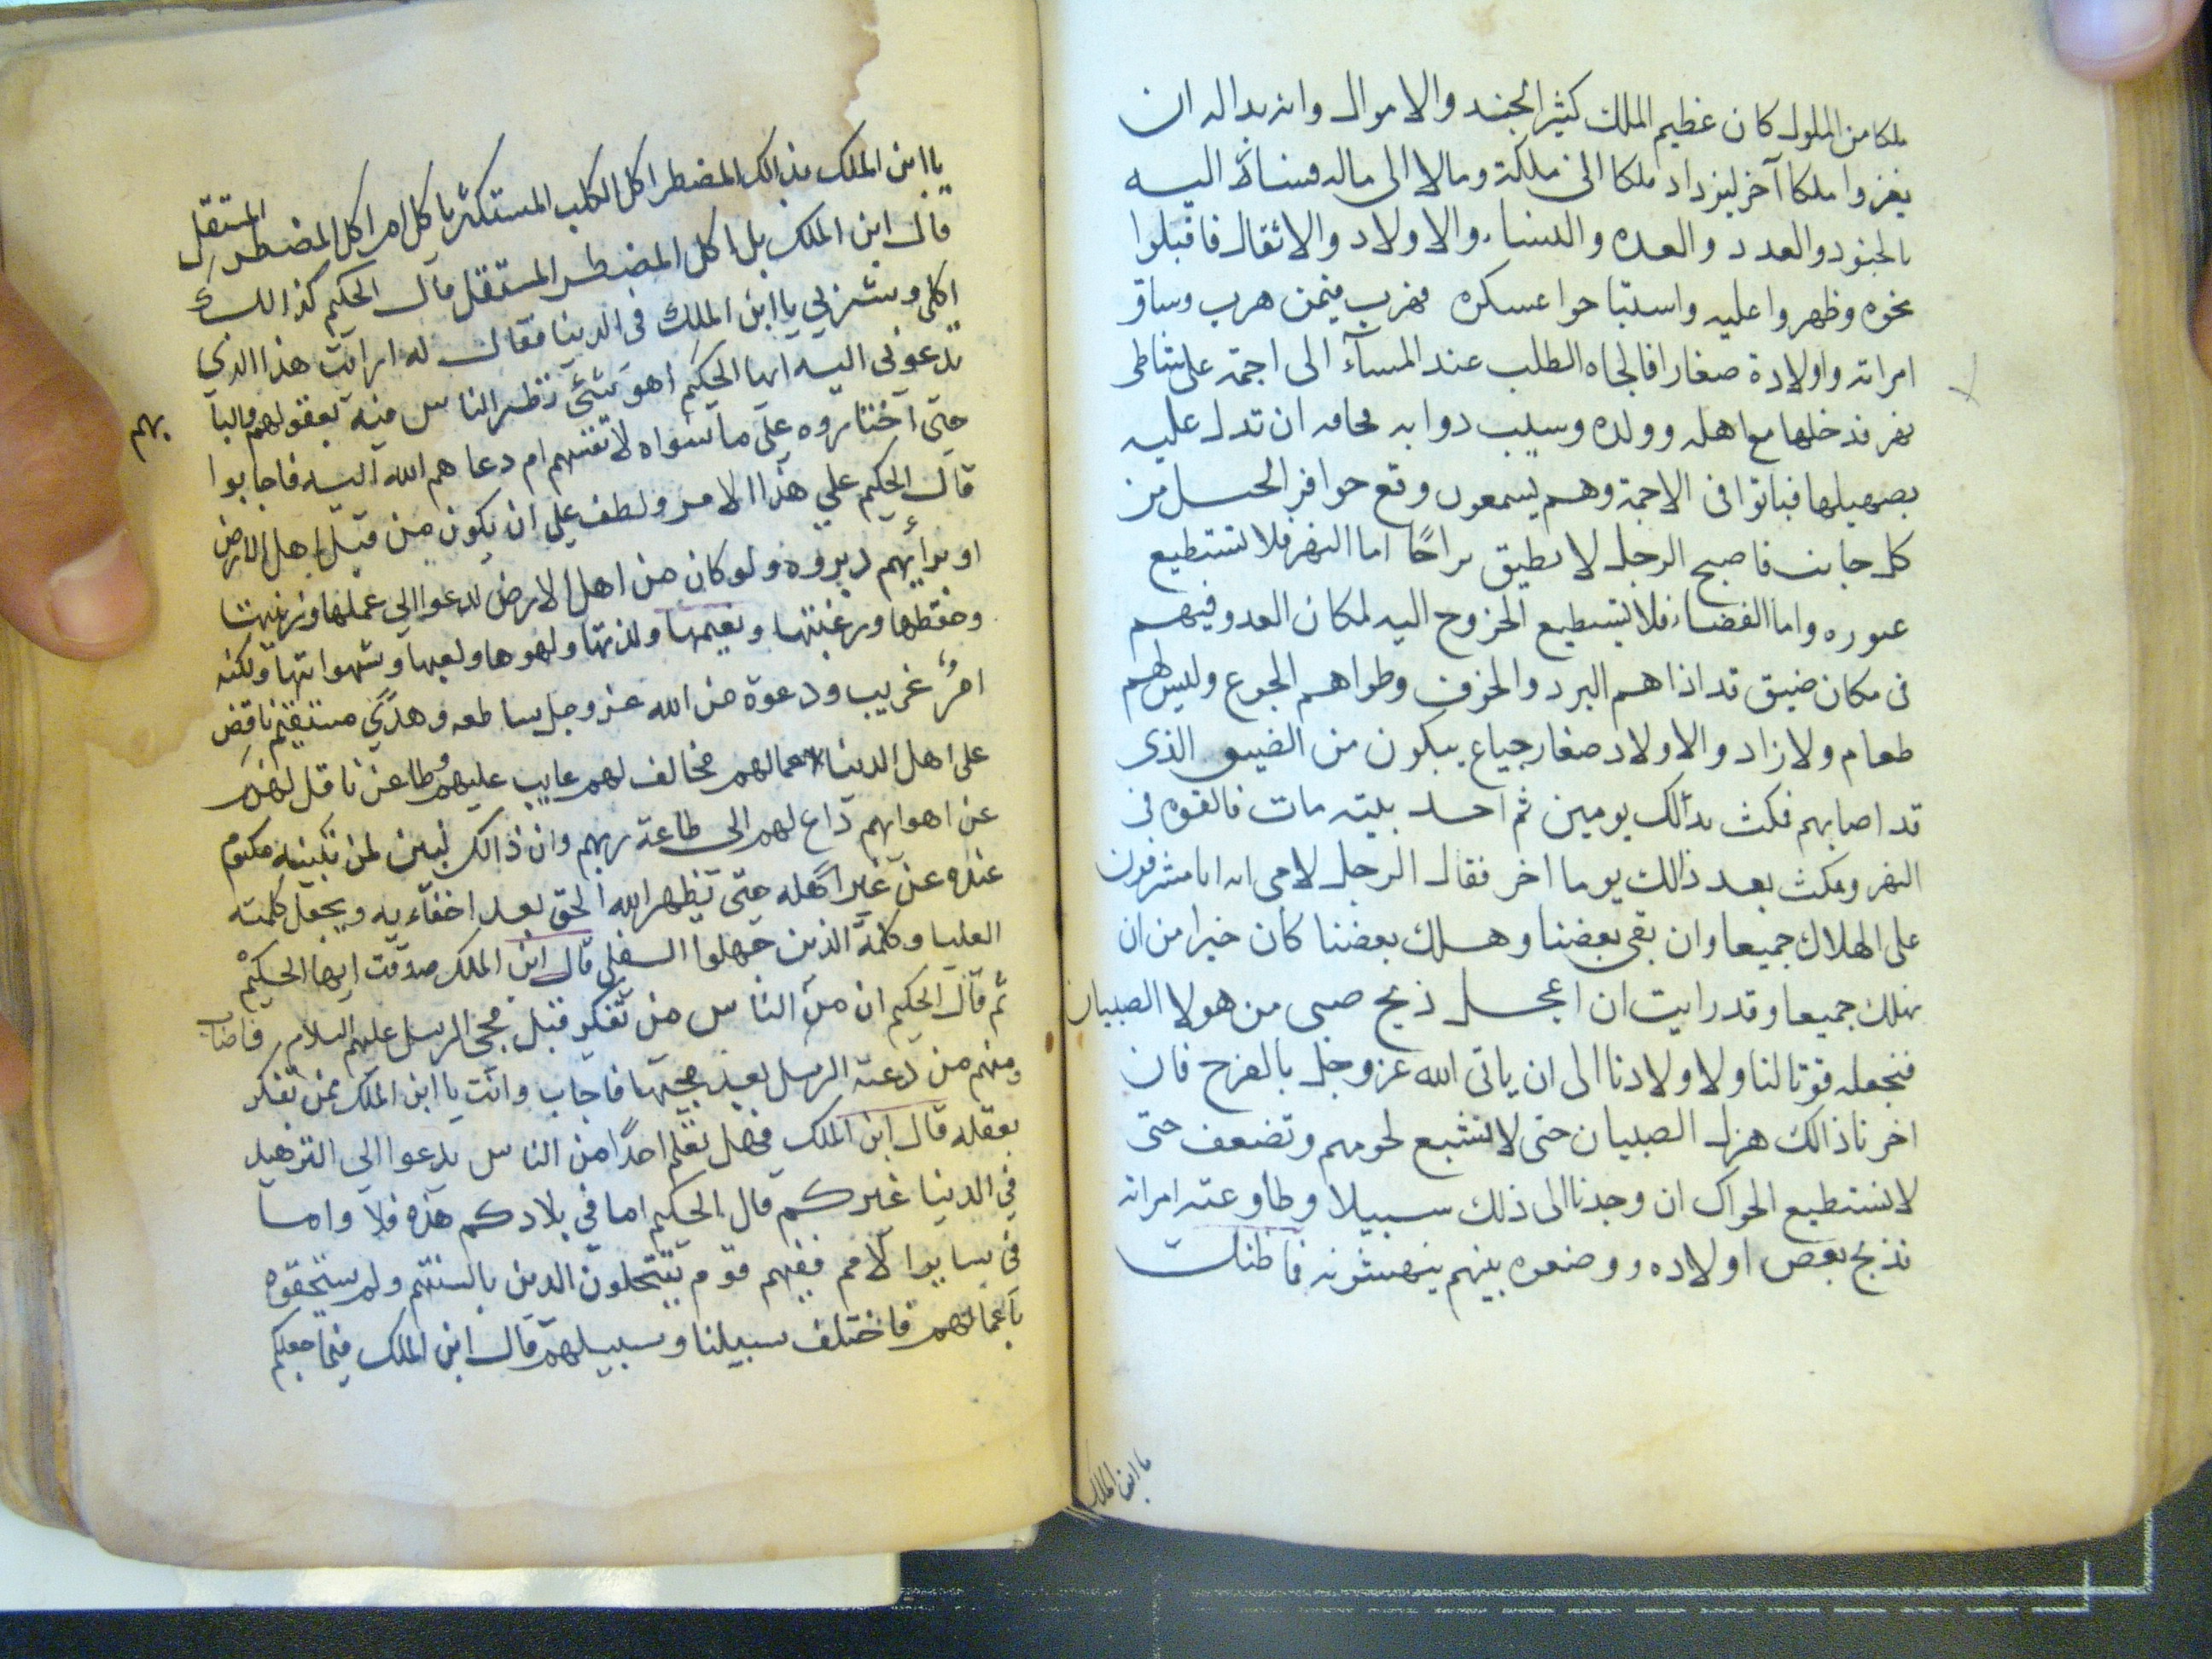 ملكا من الملوك كان عظيم الملك كثير الجند والاموال وانه بدا له ان
يغزوا ملكا آخر ليزداد ملكا الى ملكة ومالا الى ماله فسار اليه
بالجنود والعدد والعده والنساء والاولاد والاثقال فاقبلوا
نحوه وظهروا عليه واستباحوا عسكره فهرب فيمن هرب وساق
امراته واولادة صغارا فالجاه الطلب عند المسآء الى اجمة على شاطى
نهر فدخلها مع اهله وولده وسيب دوابه مخافه ان تدل عليه
بصهيلها فباتوا فى الاجمة وهم يسمعون وقع حوافر الخيل من
كل جانب فاصبح الرجل لا يطيق براحًا اما النهر فلا تستطيع
عبوره واما الفضاء فلا يستطيع الخروج اليه لمكان العدو فيهم
فى مكان ضيق قد اذاهم البرد والخوف وطواهم الجوع وليس لهم
طعام ولا زاد والاولاد صغار جياع يبكون من الضيق الذى
قد اصابهم فمكث بذالك يومين ثم احد بنيه مات فالقوه فى
النهر ومكث بعد ذالك يوما اخر فقال الرجل لامراته انا مشرفون
على الهلاك جميعا وان بقى بعضنا وهلك بعضنا كان خيرا من ان
نهلك جميعا وقد رايت ان اعجل ذبح صبى من هولا الصبيان
فنجعله قوتا لنا ولاولادنا الى ان ياتى الله عز وجل بالفرج فان
اخرنا ذالك هزل الصبيان حتى لا تشبع لحومهم وتضعف حتى
لا نستطيع الحراك ان وجدنا الى ذلك سبيلا وطاوعته امراته
فذبح بعض اولاده ووضعوه بينهم ينهشونه فما ظنك
يا ابن الملك
يا ابن الملك بذالك المضطر اكل الكلب المستكثر ياكل ام اكل المضطر المستقل
قال ابن الملك بل اكل المضطر المستقل قال الحكيم كذالك
اكلى وشربي يا ابن الملك فى الدنيا فقال له ارايت هذا الذي
تدعونى اليه ايها الحكيم اهو شئ نظر الناس فيه بعقولهم والبا
بهم
حتى آختاروه على ما سواه لانفسهم ام دعاهم الله اليه فاجابوا
قال الحكيم علي هذا الامر ولطف علي ان يكون من قبل اهل الارض
او برأيهم دبروه ولو كان من اهل الارض لدعوا الى عملها وزينتها
وحفظها ورغبتها ونعيمها ولذتها ولهوها ولعبها وشهواتها ولكنه
امرٌ غريب ودعوة من الله عز وجل ساطعه وهدًى مستقيم ناقض
على اهل الدنيا اعمالهم مخالف لهم عايب عليهم وطاعن ناقل لهم
عن اهوايهم داع لهم الى طاعة ربهم وان ذالك لبين لمن تبينه مكتوم
عنده عن غير اهله حتى يظهر الله الحق بعد اخفآءيه ويجعل كلمته
العليا وكلمة الذين جهلوا السفلى قال ابن الملك صدقت ايها الحكيم
ثم قال الحكيم ان من الناس من تفكر قبل مجئ الرسل عليهم السلام فاصاب
ومنهم من دعته الرسل بعد مجيئها فاجاب وانت يا ابن الملك ممن تفكر
بعقله قال ابن الملك فهل تعلم احدًا من الناس يدعوا الى التزهيد
في الدنيا غيركم قال الحكيم اما في بلادكم هذه فلا واما
فى ساير الامم ففيهم قوم ينتحلون الدين بالسنتهم ولم يستحقوه
باعمالهم فاختلف سبيلنا وسبيلهم قال ابن الملك فيما جعلكم